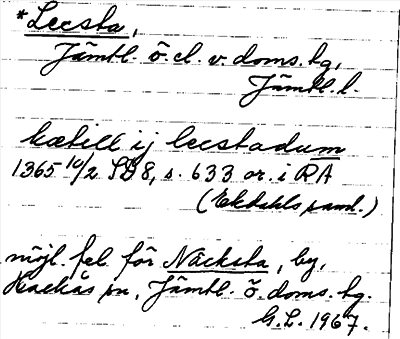 *Lecsta,
Jämtl. ö. el. v. doms. hg,
Jämtl. l.
kætill ij lecstadum
1365 10/2 SD 8, s. 633 or. i RA
(Ekdahls saml.)
möjl. fel för Näcksta, by,
Hackås sn, Jämtl. ö. doms. hg.
G.L. 1967.